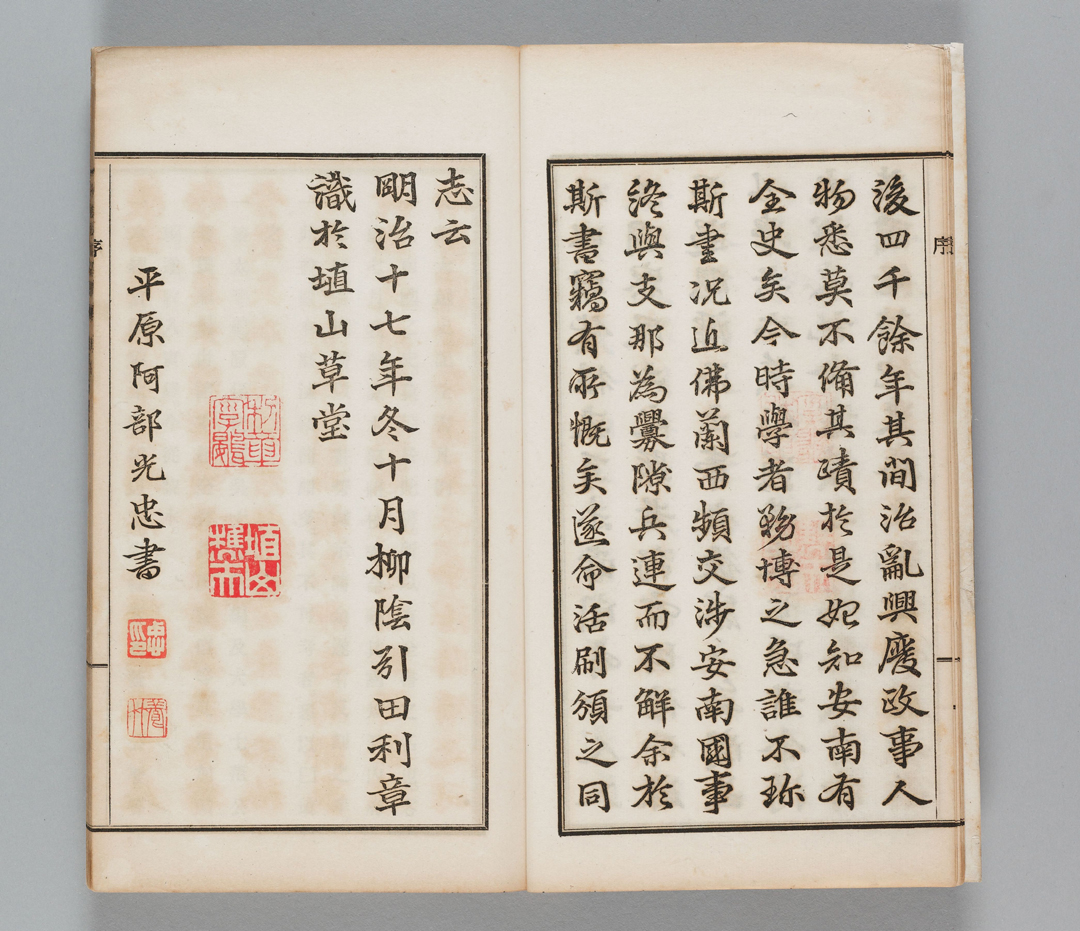 後四千餘年其間治亂興廢政事人
物悉莫不備其蹟於是始知安南有
全史矣今時學者務博之急誰不珎
斯書況近佛蘭西頻交涉安南國事
終與支那為釁隙兵連而不解余於
斯書竊有所慨矣遂命活刷頒之同
序
志云
明治十七年冬十月柳陰引田利章
識於埴山草堂
平原阿部光忠書
埴山樵夫
序